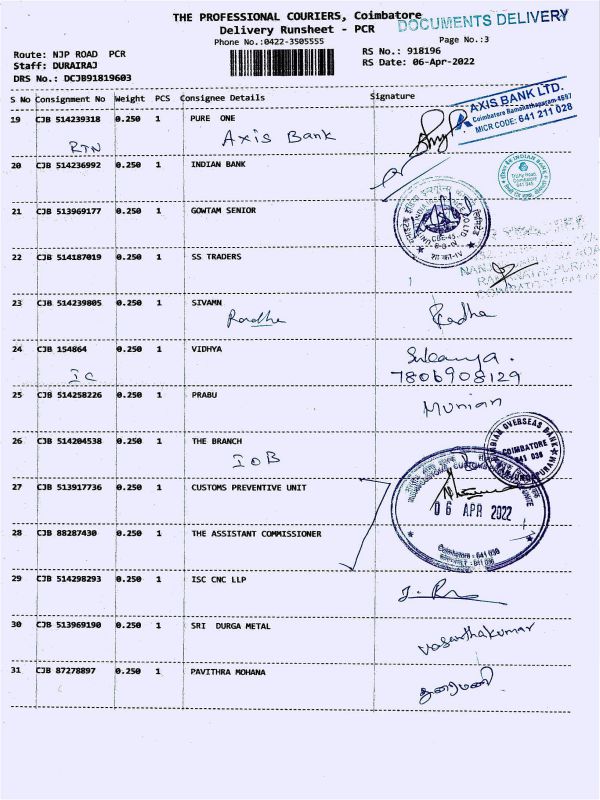 THE PROFESSIONAL COURIERS, Coimbatore
DOCUMENTS DELIVERY
Delivery Runsheet - PCR
Phone No.:0422-3505555
Page No.:3
Route: NJP ROAD PCR
RS No.: 918196
Staff: DURAIRAJ
RS Date: 06-Apr-2022
DRS No.: DCJB91819603
S No Consignment No Weight PCS Consignee Details Signature
AXIS BANK LTD.
Coimbatore Ramanathapuram-4697
MICR CODE: 641 211 028
19 CJB 514239318 0.250 1 PURE ONE
RTN Axis Bank
20 CJB 514236992 0.250 1 INDIAN BANK
INDIAN BANK
Trichy Road,
Coimbatore
641 045
21 CJB 513969177 0.250 1 GOWTAM SENIOR
CBE-45
22 CJB 514187019 0.250 1 SS TRADERS
23 CJB 514239805 0.250 1 SIVAMN
Radha Radha
24 CJB 154864 0.250 1 VIDHYA Sukanya.
IC 7806908129
25 CJB 514258226 0.250 1 PRABU Munian
26 CJB 514204538 0.250 1 THE BRANCH
IOB
INDIAN OVERSEAS BANK
COIMBATORE
641 036
27 CJB 513917736 0.250 1 CUSTOMS PREVENTIVE UNIT
06 APR 2022
28 CJB 88287430 0.250 1 THE ASSISTANT COMMISSIONER
29 CJB 514298293 0.250 1 ISC CNC LLP
30 CJB 513969190 0.250 1 SRI DURGA METAL Vasanthakumar
31 CJB 87278897 0.250 1 PAVITHRA MOHANA